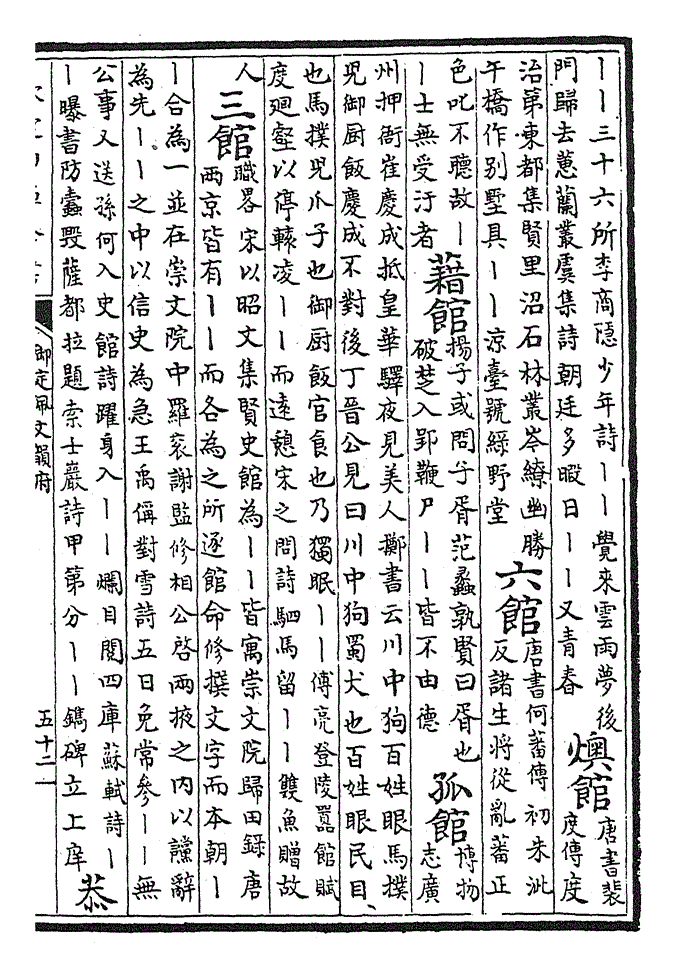 丨丨三十六所李商隱少年詩丨丨覺來雲雨夢後
門歸去蕙蘭叢虞集詩朝廷多暇日丨丨又青春
燠館
唐書裴
度傳度
治第東都集賢里沼石林叢岑繚幽勝
午橋作別墅具丨丨涼臺號綠野堂
六館
唐書何蕃傳初朱泚
反諸生將從亂蕃正
色叱不聽故丨
丨士無受汙者
藉館
揚子或問子胥范蠡孰賢曰胥也
破楚入郢鞭尸丨丨皆不由德
孤館
博物
志廣
州押衙崔慶成抵皇華驛夜見美人擲書云川中狗百姓眼馬撲
兒御厨飯慶成不對後丁晉公見曰川中狗蜀犬也百姓眼民目
也馬撲兒爪子也御厨飯官食也乃獨眠丨丨傅亮登陵囂館賦
度迴壑以停轅凌丨丨而遠憩宋之問詩駟馬留丨丨雙魚贈故
人
三館
職畧宋以昭文集賢史館為丨丨皆寓崇文院歸田録唐
兩京皆有丨丨而各為之所逐館命修撰文字而本朝丨
丨合為一並在崇文院中羅袞謝監修相公啓兩掖之内以讜辭
為先丨丨之中以信史為急王禹偁對雪詩五日免常參丨丨無
公事又送孫何入史館詩躍身入丨丨爛目閱四庫蘇軾詩丨
丨曝書防蠹毁薩都拉題索士巖詩甲第分丨丨鐫碑立上庠
恭
御定佩文韻府
五十二